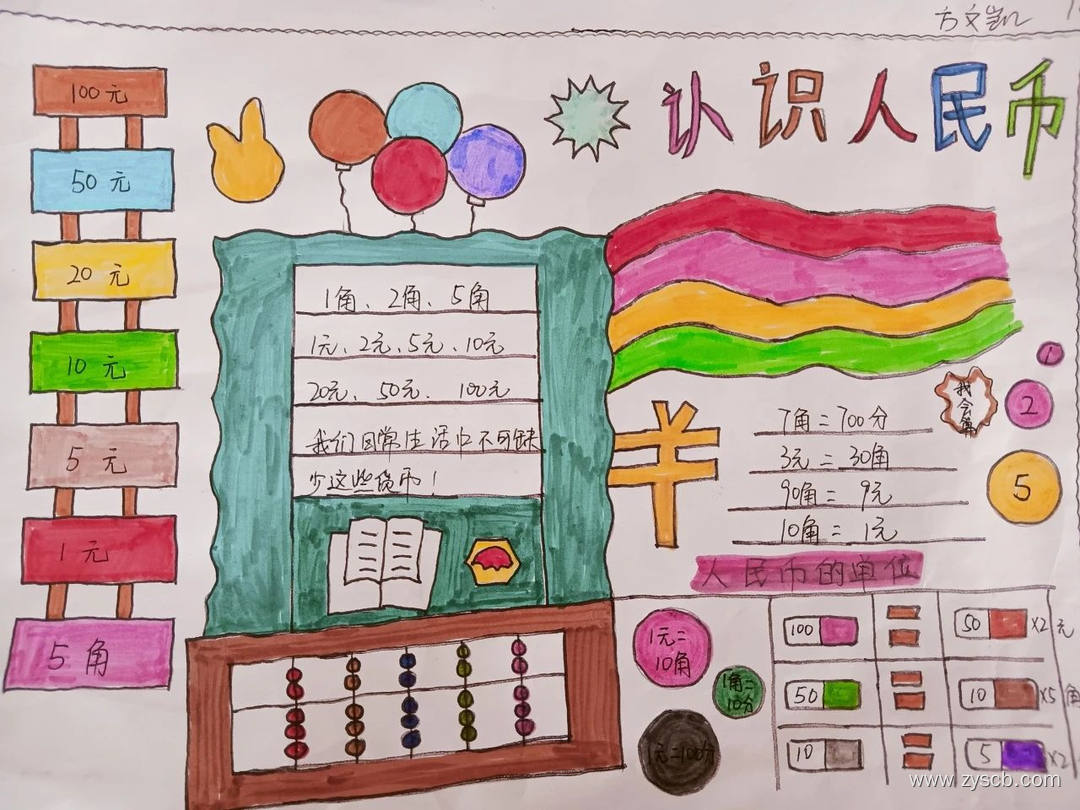 方文凯
认识人民币
100元
50元
20元
10元
5元
1元
5角
1角、2角、5角
1元、2元、5元、10元
20元、50元、100元
我们日常生活中不可缺
少这些货币！
1
2
5
我会算
7角=700分
3元=30角
90角=9元
10角=1元
人民币的单位
1元=
10角
1角=
10分
1元=100分
100 = 50 ×2 元
50 = 10 ×5 角
10 = 5 ×2
www.zyscb.com